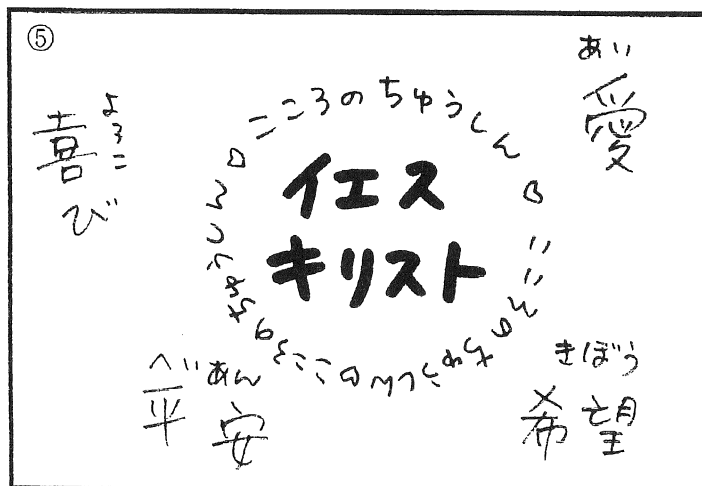 ⑤
あい
愛
よろこ
喜び
こころのちゅうしん
こころのちゅうしん
こころのちゅうしん
イエス
キリスト
へいあん
平安
きぼう
希望